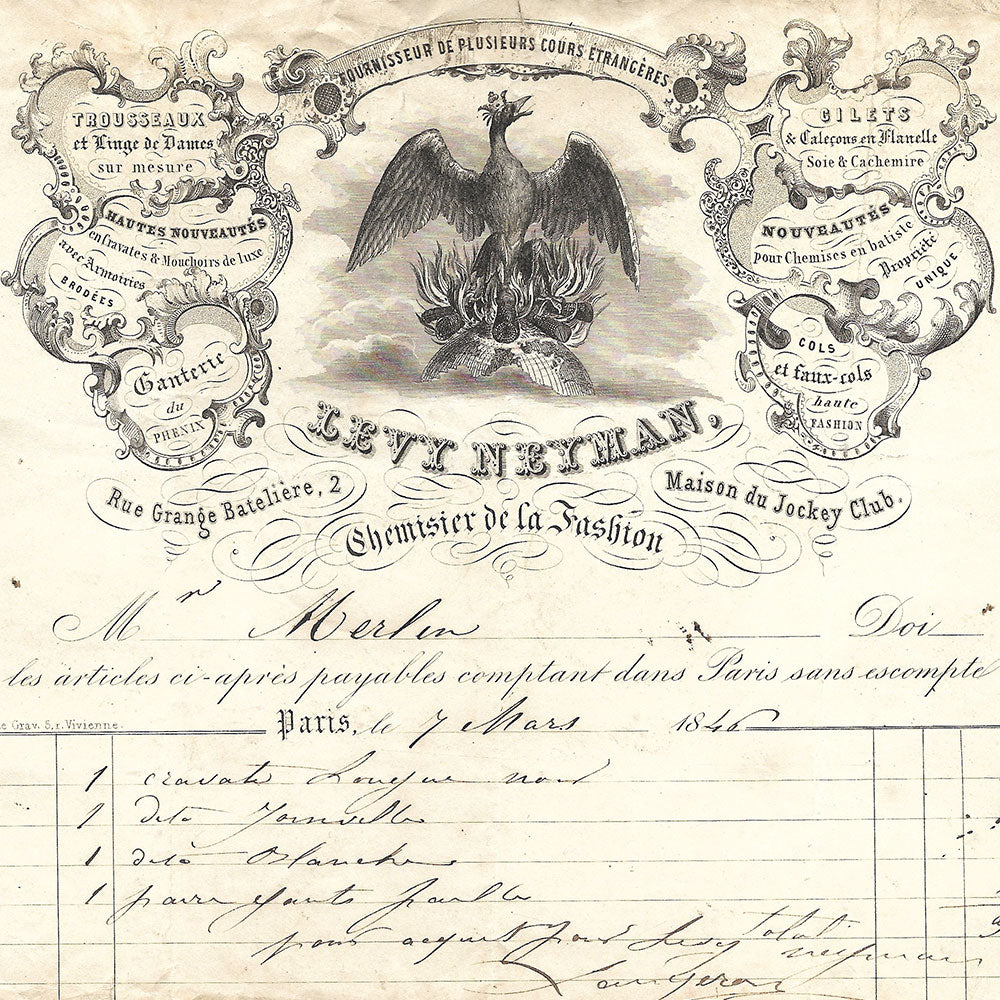 FOURNISSEUR DE PLUSIEURS COURS ETRANGÈRES
TROUSSEAUX
et Linge de Dames
sur mesure
HAUTES NOUVEAUTÉS
en Cravates & Mouchoirs de luxe
avec Armoiries
BRODÉES
Ganterie
du
PHENIX
GILETS
& Caleçons en Flanelle
Soie & Cachemire
NOUVEAUTÉS
pour Chemises en batiste
Propriété
UNIQUE
COLS
et faux-cols
haute
FASHION
LEVY NEYMAN,
Rue Grange Batelière, 2
Maison du Jockey Club.
Chemisier de la Fashion
Mr Merlin Doi
les articles ci-après payables comptant dans Paris sans escompte
Grav. 5, r. Vivienne.
Paris, le 7 Mars 1846
1 cravate Longue noir
1 dito Joinville
1 dito Blanche
1 paire gants paille
total
pour acquit pour Levy neyman